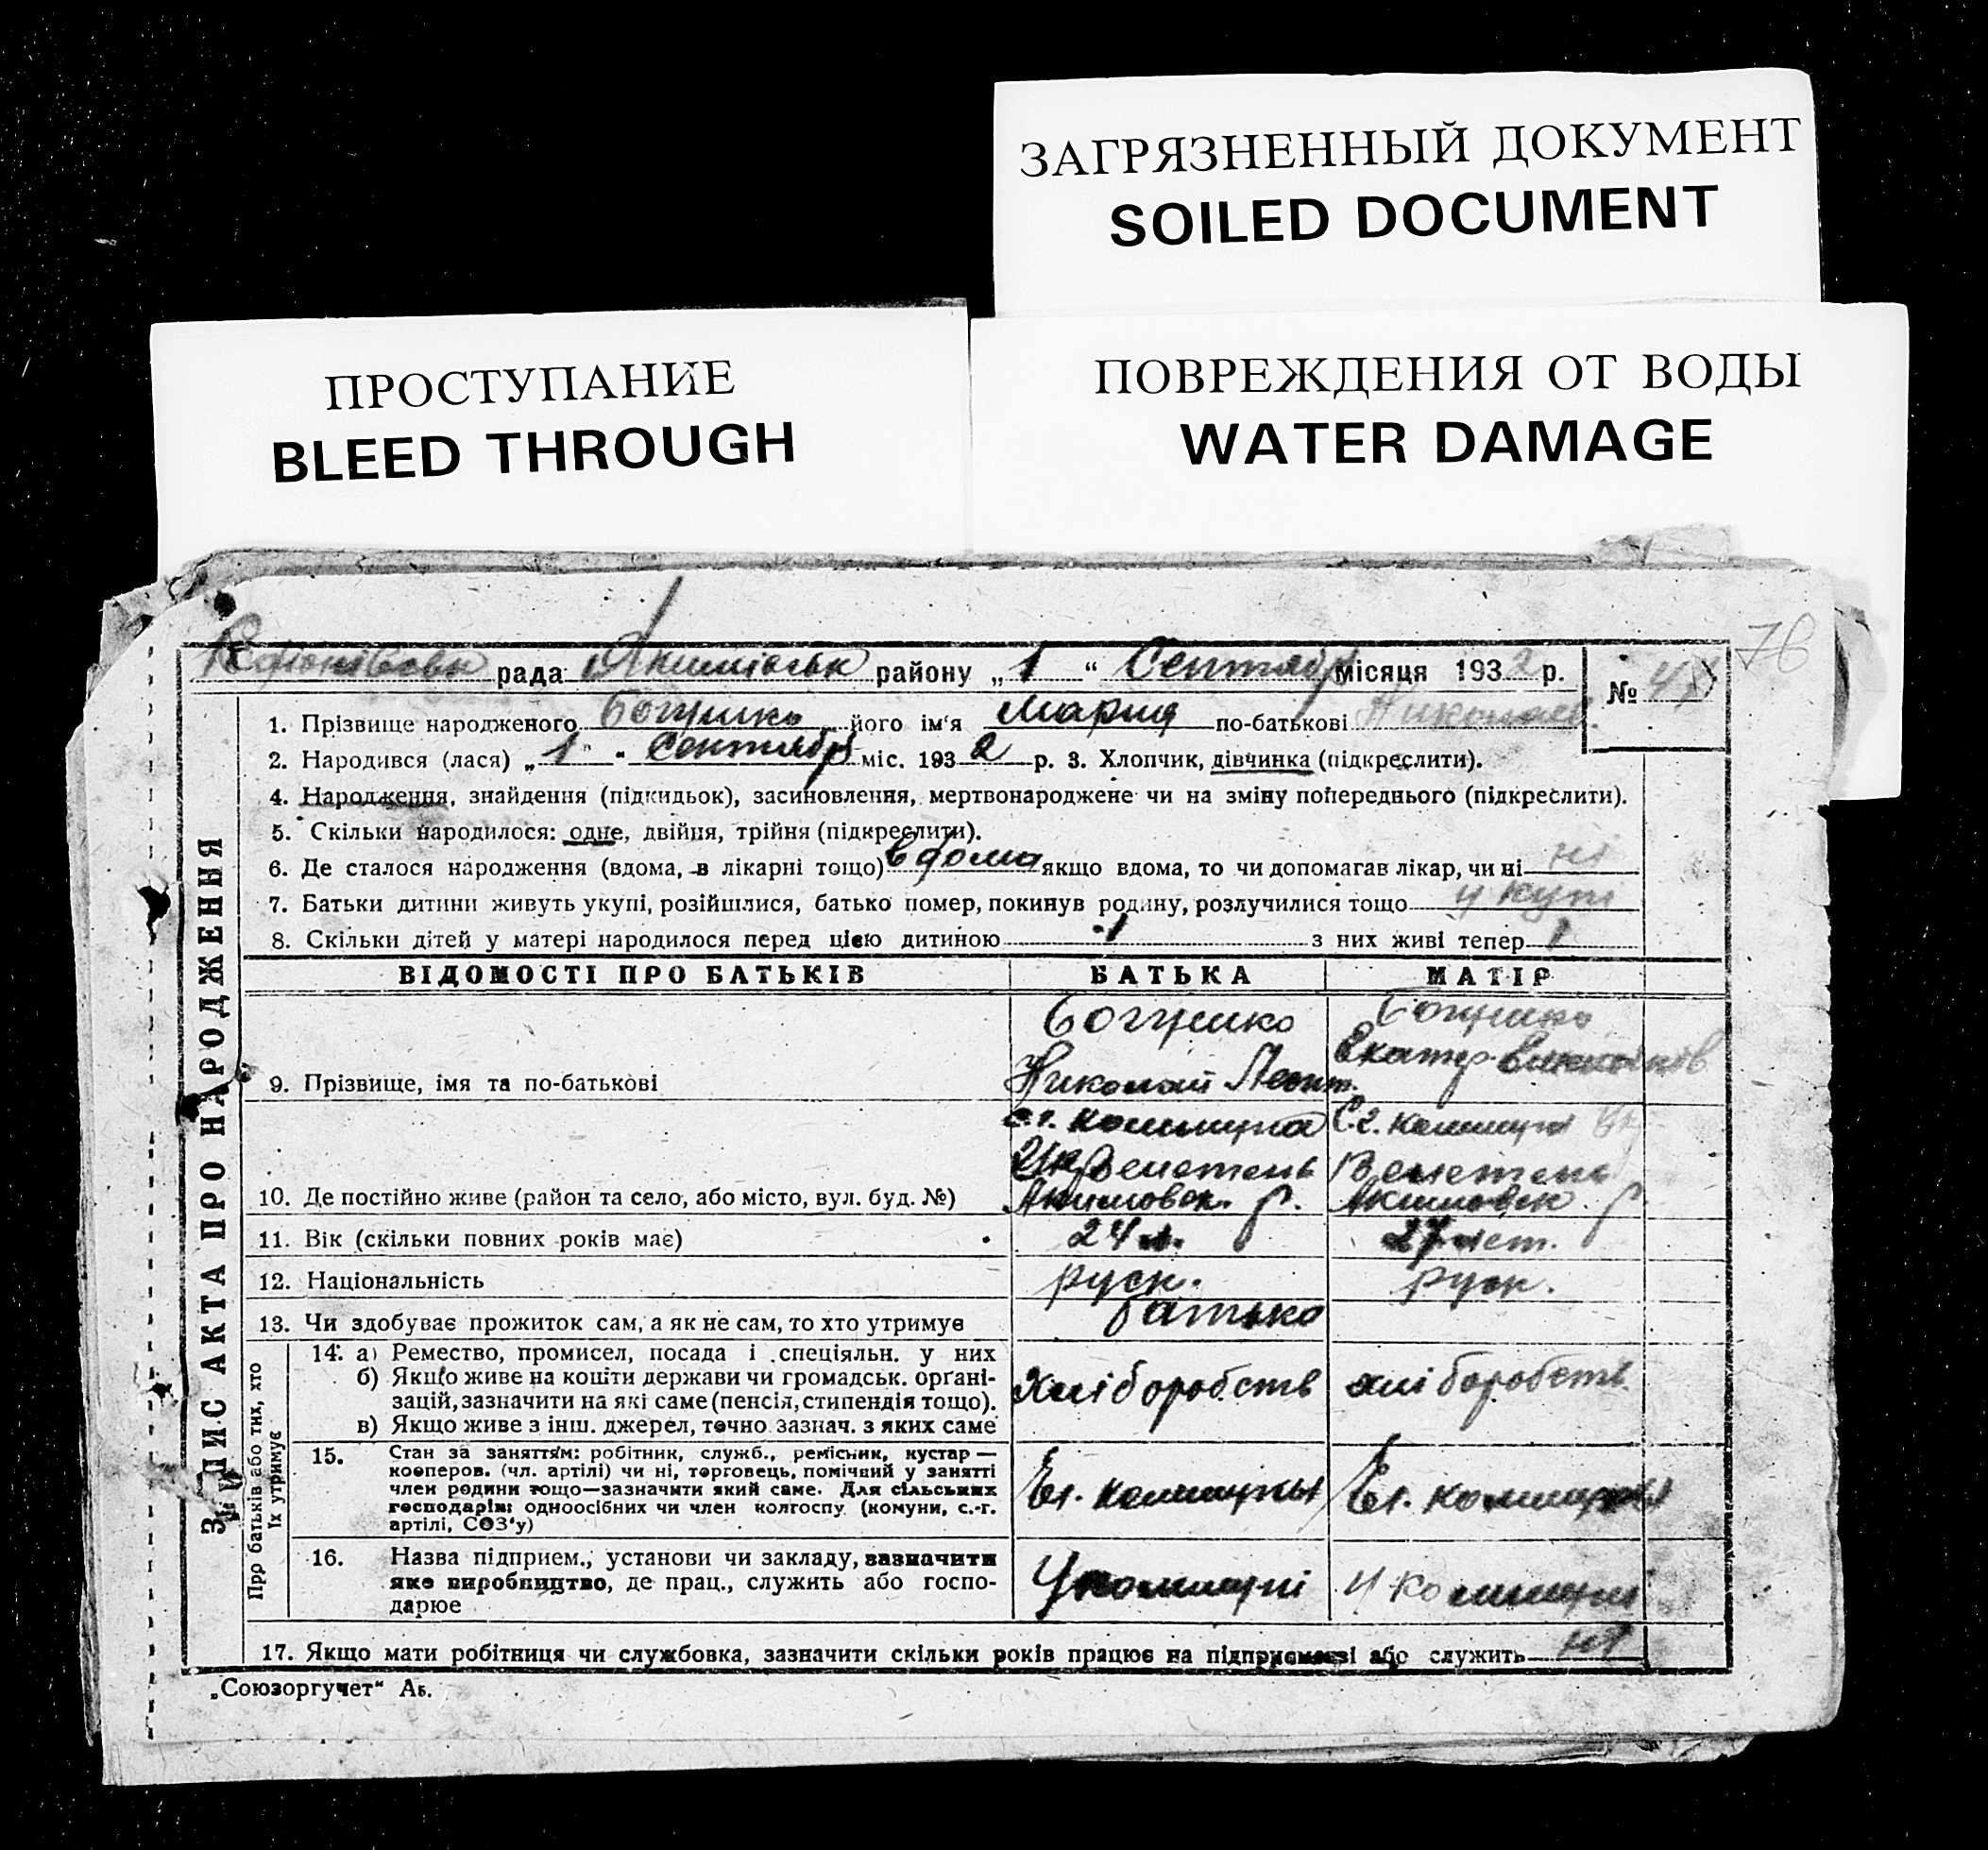 ЗАГРЯЗНЕННЫЙ ДОКУМЕНТ
SOILED DOCUMENT
ПРОСТУПАНИЕ
BLEED THROUGH
ПОВРЕЖДЕНИЯ ОТ ВОДЫ
WATER DAMAGE
76
рада Якимівськ району „1“ Сентября місяця 1932 р.
№
1. Прізвище народженого Богушко його ім‘я Мария по-батькові Николаев.
2. Народився (лася) „1“ Сентября міс. 1932 р. 3. Хлопчик, дівчинка (підкреслити).
4. Народження, знайдення (підкидьок), засиновлення, мертвонароджене чи на зміну попереднього (підкреслити).
5. Скільки народилося: одне, двійня, трійня (підкреслити).
6. Де сталося народження (вдома, в лікарні тощо) вдома якщо вдома, то чи допомагав лікар, чи ні ні
7. Батьки дитини живуть укупі, розійшлися, батько помер, покинув родину, розлучилися тощо у купі
8. Скільки дітей у матері народилося перед цією дитиною 1 з них живі тепер 1
ЗАПИС АКТА ПРО НАРОДЖЕННЯ
ВІДОМОСТІ ПРО БАТЬКІВ БАТЬКА МАТІР
Богушко Богушко
9. Прізвище, імя та по-батькові Николай Леонт. Екатер.
с.г. коммуна С.г. коммуна
10. Де постійно живе (район та село, або місто, вул. буд. №) Акимовск. р. Акимовск. р.
11. Вік (скільки повних років має) 24 л. 27 лет.
12. Національність руск. руск.
13. Чи здобуває прожиток сам, а як не сам, то хто утримує батько
Про батьків або тих, хто їх утримує
14. а) Ремество, промисел, посада і спеціяльн. у них
б) Якщо живе на кошти держави чи громадськ. орґані-
зацій, зазначити на які саме (пенсія, стипендія тощо).
в) Якщо живе з інш. джерел, точно зазнач. з яких саме
хліборобств хліборобств
15. Стан за заняттям: робітник, служб., ремісник, кустар —
кооперов. (чл. артілі) чи ні, торговець, помічний у занятті
член родини тощо—зазначити який саме. Для сільських
господарів: одноосібних чи член колгоспу (комуни, с.-г.
артілі, СОЗ‘у)
Чл. коммуны Чл. коммуны
16. Назва підприєм., установи чи закладу, зазначити
яке виробництво, де прац., служить або госпо-
дарює
У коммуні у коммуні
17. Якщо мати робітниця чи службовка, зазначити скільки років працює на підприємстві або служить ні
„Союзоргучет“ Аб.